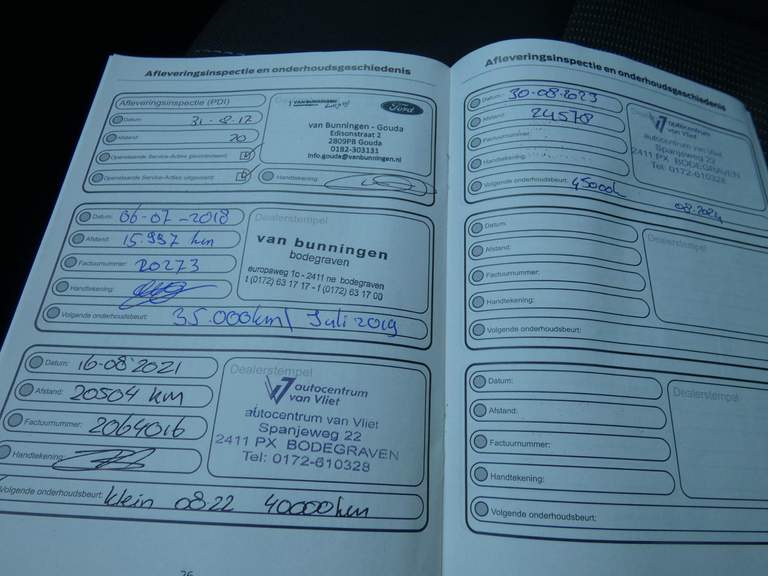 Afleveringsinspectie en onderhoudsgeschiedenis
Afleveringsinspectie (PDI)
Datum:
Afstand: 20
Openstaande Service-Acties
Openstaande Service-Acties
VAN BUNNINGEN
Ford
van Bunningen - Gouda
Edisonstraat 2
2809PB Gouda
0182-303131
info.gouda@vanbunningen.nl
Handtekening:
Datum: 06-07-2018
Afstand: 15.997 km
Factuurnummer: 20273
Handtekening:
Volgende onderhoudsbeurt: 35.000km/ Juli 2019
Dealerstempel
van bunningen
bodegraven
europaweg 1c - 2411 ne bodegraven
t (0172) 63 17 17 - f (0172) 63 17 00
Datum: 16-08-2021
Afstand: 20504 km
Factuurnummer: 2064016
Handtekening:
Volgende onderhoudsbeurt: klein 08-22 40000km
Dealerstempel
autocentrum
van Vliet
autocentrum van Vliet
Spanjeweg 22
2411 PX BODEGRAVEN
Tel: 0172-610328
Afleveringsinspectie en onderhoudsgeschiedenis
Datum: 30-08-2023
Afstand: 24578
Factuurnummer:
Handtekening:
Volgende onderhoudsbeurt: 45000k 08.2024
autocentrum
van Vliet
autocentrum van Vliet
Spanjeweg 22
2411 PX BODEGRAVEN
Tel: 0172-610328
Datum:
Afstand:
Factuurnummer:
Handtekening:
Volgende onderhoudsbeurt:
Dealerstempel
Datum:
Afstand:
Factuurnummer:
Handtekening:
Volgende onderhoudsbeurt:
Dealerstempel